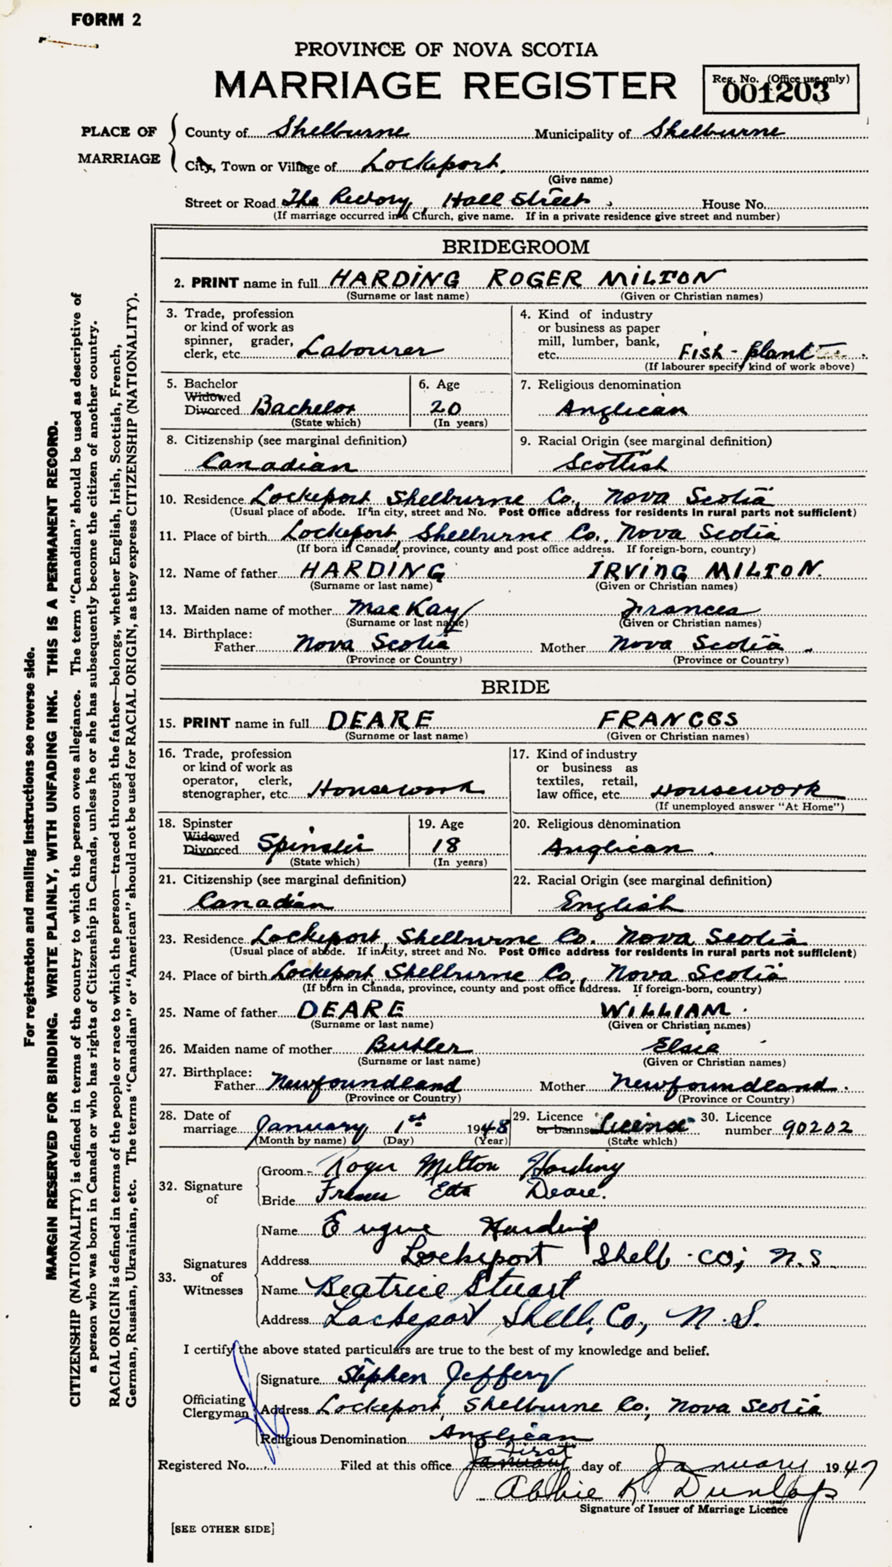 FORM 2
PROVINCE OF NOVA SCOTIA
MARRIAGE REGISTER
Reg. No. (Office use only)
001203
PLACE OF MARRIAGE
County of Shelburne Municipality of Shelburne
City, Town or Village of Lockeport,
(Give name)
Street or Road The Rectory, Hall Street, House No.
(If marriage occurred in a Church, give name. If in a private residence give street and number)
BRIDEGROOM
2. PRINT name in full HARDING ROGER MILTON
(Surname or last name) (Given or Christian names)
3. Trade, profession or kind of work as spinner, grader, clerk, etc. Labourer
4. Kind of industry or business as paper mill, lumber, bank, etc. Fish-plant
(If labourer specify kind of work above)
5. Bachelor Widowed Divorced Bachelor
(State which)
6. Age 20
(In years)
7. Religious denomination
Anglican
8. Citizenship (see marginal definition)
Canadian
9. Racial Origin (see marginal definition)
Scottish
10. Residence Lockeport Shelburne Co, Nova Scotia
(Usual place of abode. If in city, street and No. Post Office address for residents in rural parts not sufficient)
11. Place of birth Lockeport, Shelburne Co., Nova Scotia
(If born in Canada, province, county and post office address. If foreign-born, country)
12. Name of father HARDING IRVING MILTON.
(Surname or last name) (Given or Christian names)
13. Maiden name of mother MacKay Frances
(Surname or last name) (Given or Christian names)
14. Birthplace:
Father Nova Scotia Mother Nova Scotia
(Province or Country) (Province or Country)
BRIDE
15. PRINT name in full DEARE FRANCES
(Surname or last name) (Given or Christian names)
16. Trade, profession or kind of work as operator, clerk, stenographer, etc. Housework
17. Kind of industry or business as textiles, retail, law office, etc. Housework
(If unemployed answer "At Home")
18. Spinster Widowed Divorced Spinster
(State which)
19. Age 18
(In years)
20. Religious denomination
Anglican
21. Citizenship (see marginal definition)
Canadian
22. Racial Origin (see marginal definition)
English
23. Residence Lockeport, Shelburne Co. Nova Scotia
(Usual place of abode. If in city, street and No. Post Office address for residents in rural parts not sufficient)
24. Place of birth Lockeport Shelburne Co, Nova Scotia
(If born in Canada, province, county and post office address. If foreign-born, country)
25. Name of father DEARE WILLIAM.
(Surname or last name) (Given or Christian names)
26. Maiden name of mother Butler Elsie
(Surname or last name) (Given or Christian names)
27. Birthplace:
Father Newfoundland Mother Newfoundland.
(Province or Country) (Province or Country)
28. Date of marriage January 1st 1948
(Month by name) (Day) (Year)
29. Licence or banns License
(State which)
30. Licence number 90202
32. Signature of
Groom Roger Milton Harding
Bride Frances Etta Deare.
33. Signatures of Witnesses
Name Eugene Harding
Address Lockeport Shelb. co; N.S
Name Beatrice Stuart
Address Lockeport Shelb, Co, N.S.
I certify the above stated particulars are true to the best of my knowledge and belief.
Officiating Clergyman
Signature Stephen Jeffery
Address Lockeport, Shelburne Co, Nova Scotia
Religious Denomination Anglican
First
Registered No. Filed at this office January day of January 1947
Abbie K Dunlap
Signature of Issuer of Marriage Licence
[SEE OTHER SIDE]
For registration and mailing instructions see reverse side.
MARGIN RESERVED FOR BINDING. WRITE PLAINLY, WITH UNFADING INK. THIS IS A PERMANENT RECORD.
CITIZENSHIP (NATIONALITY) is defined in terms of the country to which the person owes allegiance. The term "Canadian" should be used as descriptive of
a person who was born in Canada or who has rights of Citizenship in Canada, unless he or she has subsequently become the citizen of another country.
RACIAL ORIGIN is defined in terms of the people or race to which the person—traced through the father—belongs, whether English, Irish, Scottish, French,
German, Russian, Ukrainian, etc. The terms "Canadian" or "American" should not be used for RACIAL ORIGIN, as they express CITIZENSHIP (NATIONALITY).